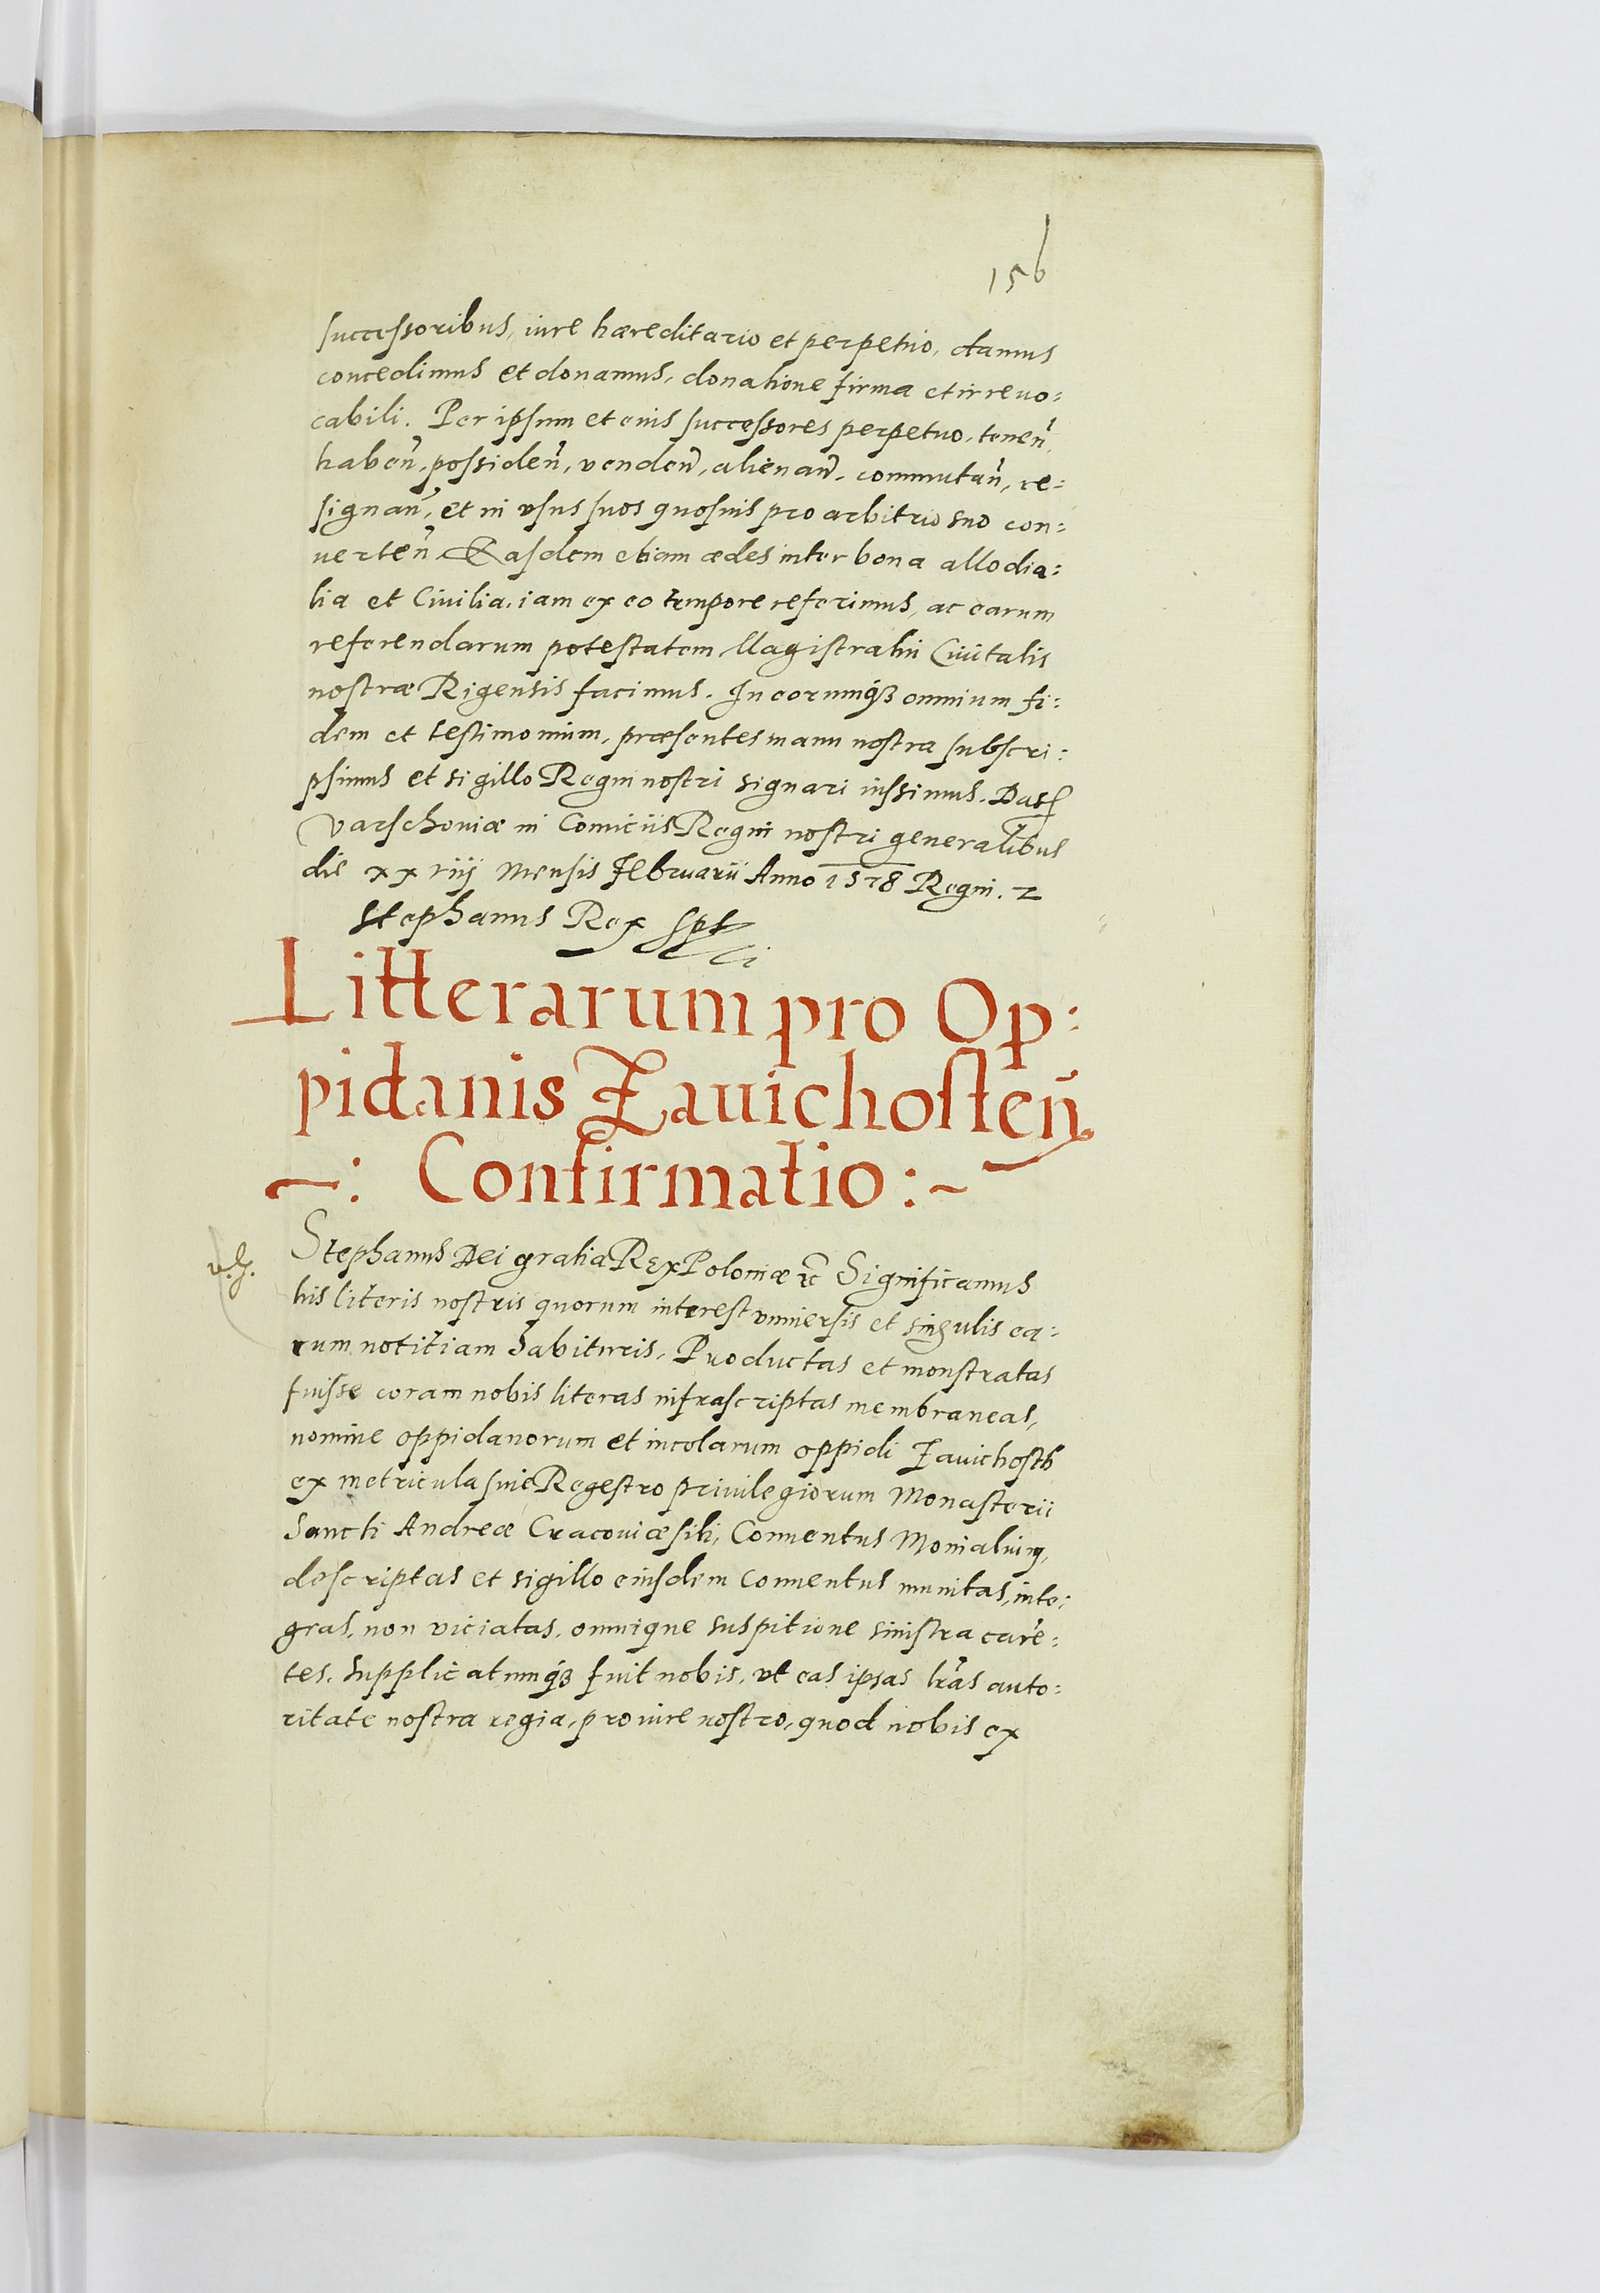 156
successoribus, iure hæreditario et perpetuo, damus
concedimus et donamus, donatione firma et irreuo:
cabili. Per ipsum et eius successores perpetuo, tenen̄,
haben̄, possiden̄, venden̄, alienan̄, commutan̄, re:
signan̄, et in vsus suos quosuis pro arbitrio suo con:
uerten̄ Easdem etiam ædes inter bona allodia:
lia et Ciuilia, iam ex eo tempore referimus, ac earum
referendarum potestatem Magistratui Ciuitatis
nostræ Rigensis facimus. In eorumq́ꝫ omnium fi:
dem et testimonium, præsentes manu nostra subscri:
psimus et sigillo Regni nostri signari iussimus. Dat
Varschouiæ in Comitiis Regni nostri generalibus
die xx viij Mensis Februarii Anno 1578 Regni. 2
Stephanus Rex spt
Litterarum pro Op:
pidanis Zauichosten̄
~: Confirmatio :~
Stephanus Dei gratia Rex Poloniæ ꝛc̄ Significamus
his literis nostris quorum interest vniuersis et singulis ea:
rum notitiam habituris, Productas et monstratas
fuisse coram nobis literas infrascriptas membraneas,
nomine oppidanorum et incolarum oppidi Zauichosth
ex metricula siue Regestro priuilegiorum Monasterii
Sancti Andreæ Cracouiæ siti, Conuentus Monialium,
descriptas et sigillo eiusdem Conuentus munitas, inte:
gras, non viciatas, omnique suspitione sinistra carē:
tes. Supplicatumq́ꝫ fuit nobis, vt eas ipsas lrās auto:
ritate nostra regia, pro iure nostro, quod nobis ex